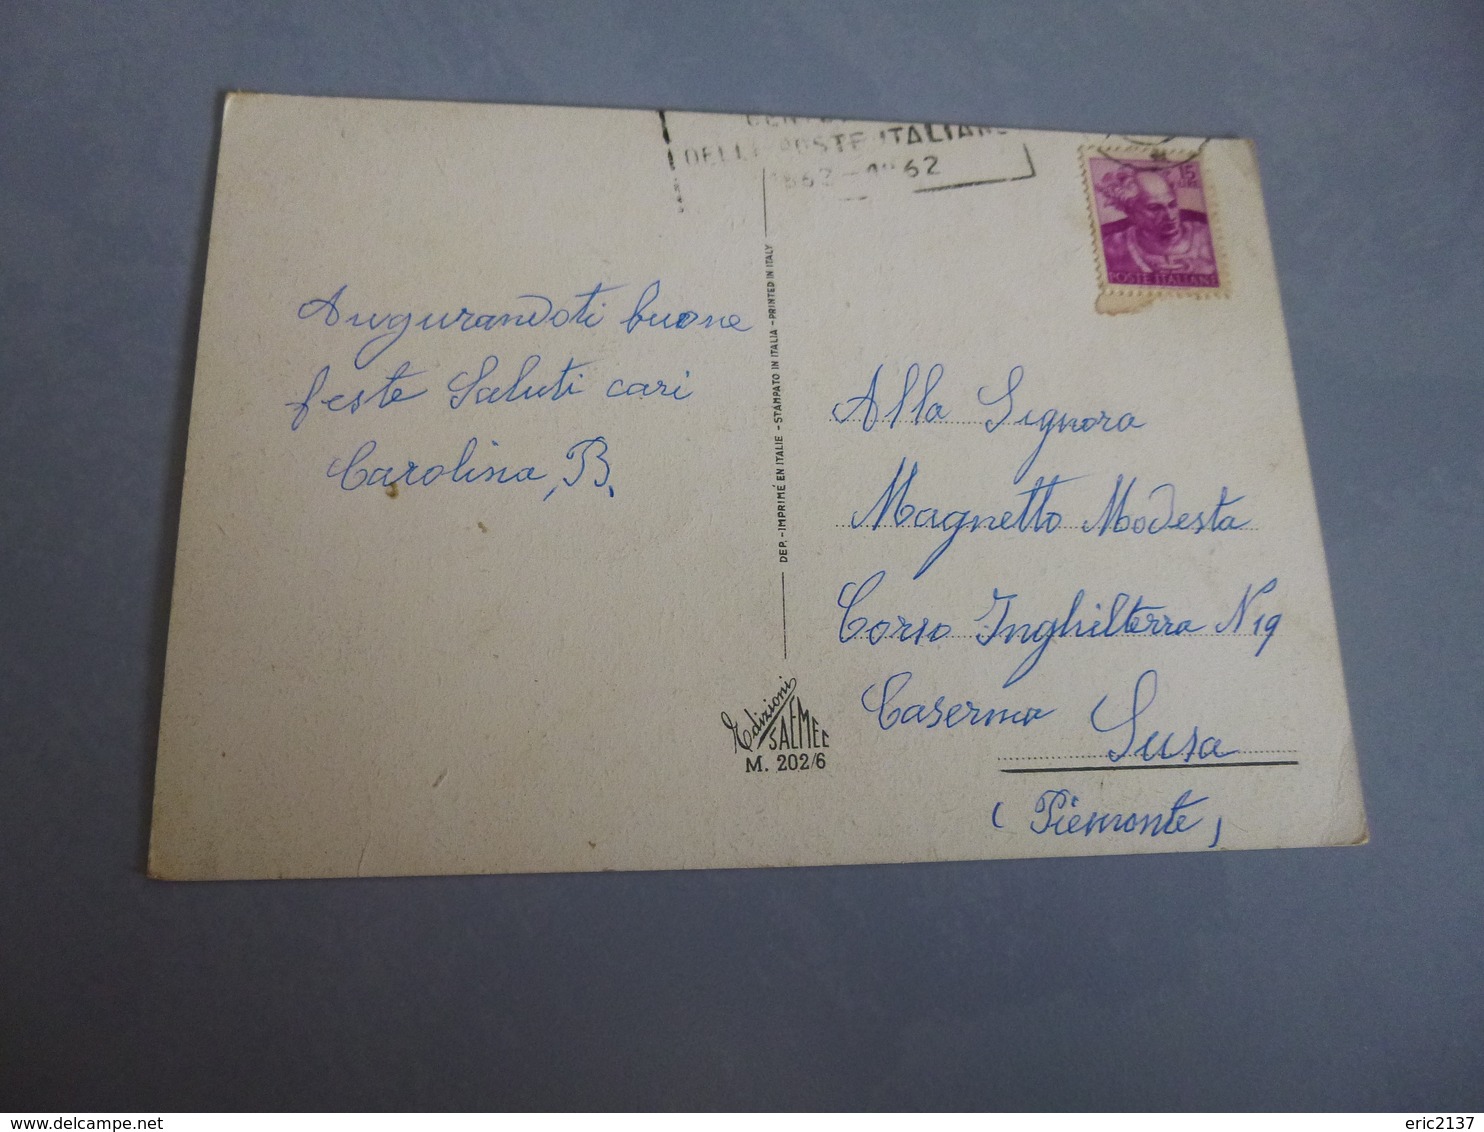 DELLE POSTE ITALIANE
1862 - 1962
15
POSTE ITALIANE
Augurandoti buone
feste Saluti cari
Carolina, B.
DEP. - IMPRIMÉ EN ITALIE - STAMPATO IN ITALIA - PRINTED IN ITALY
Edizioni
SAEMEC
M. 202/6
Alla Signora
Magnetto Modesta
Corso Inghilterra N 19
Caserma Susa
(Piemonte)
eric2137